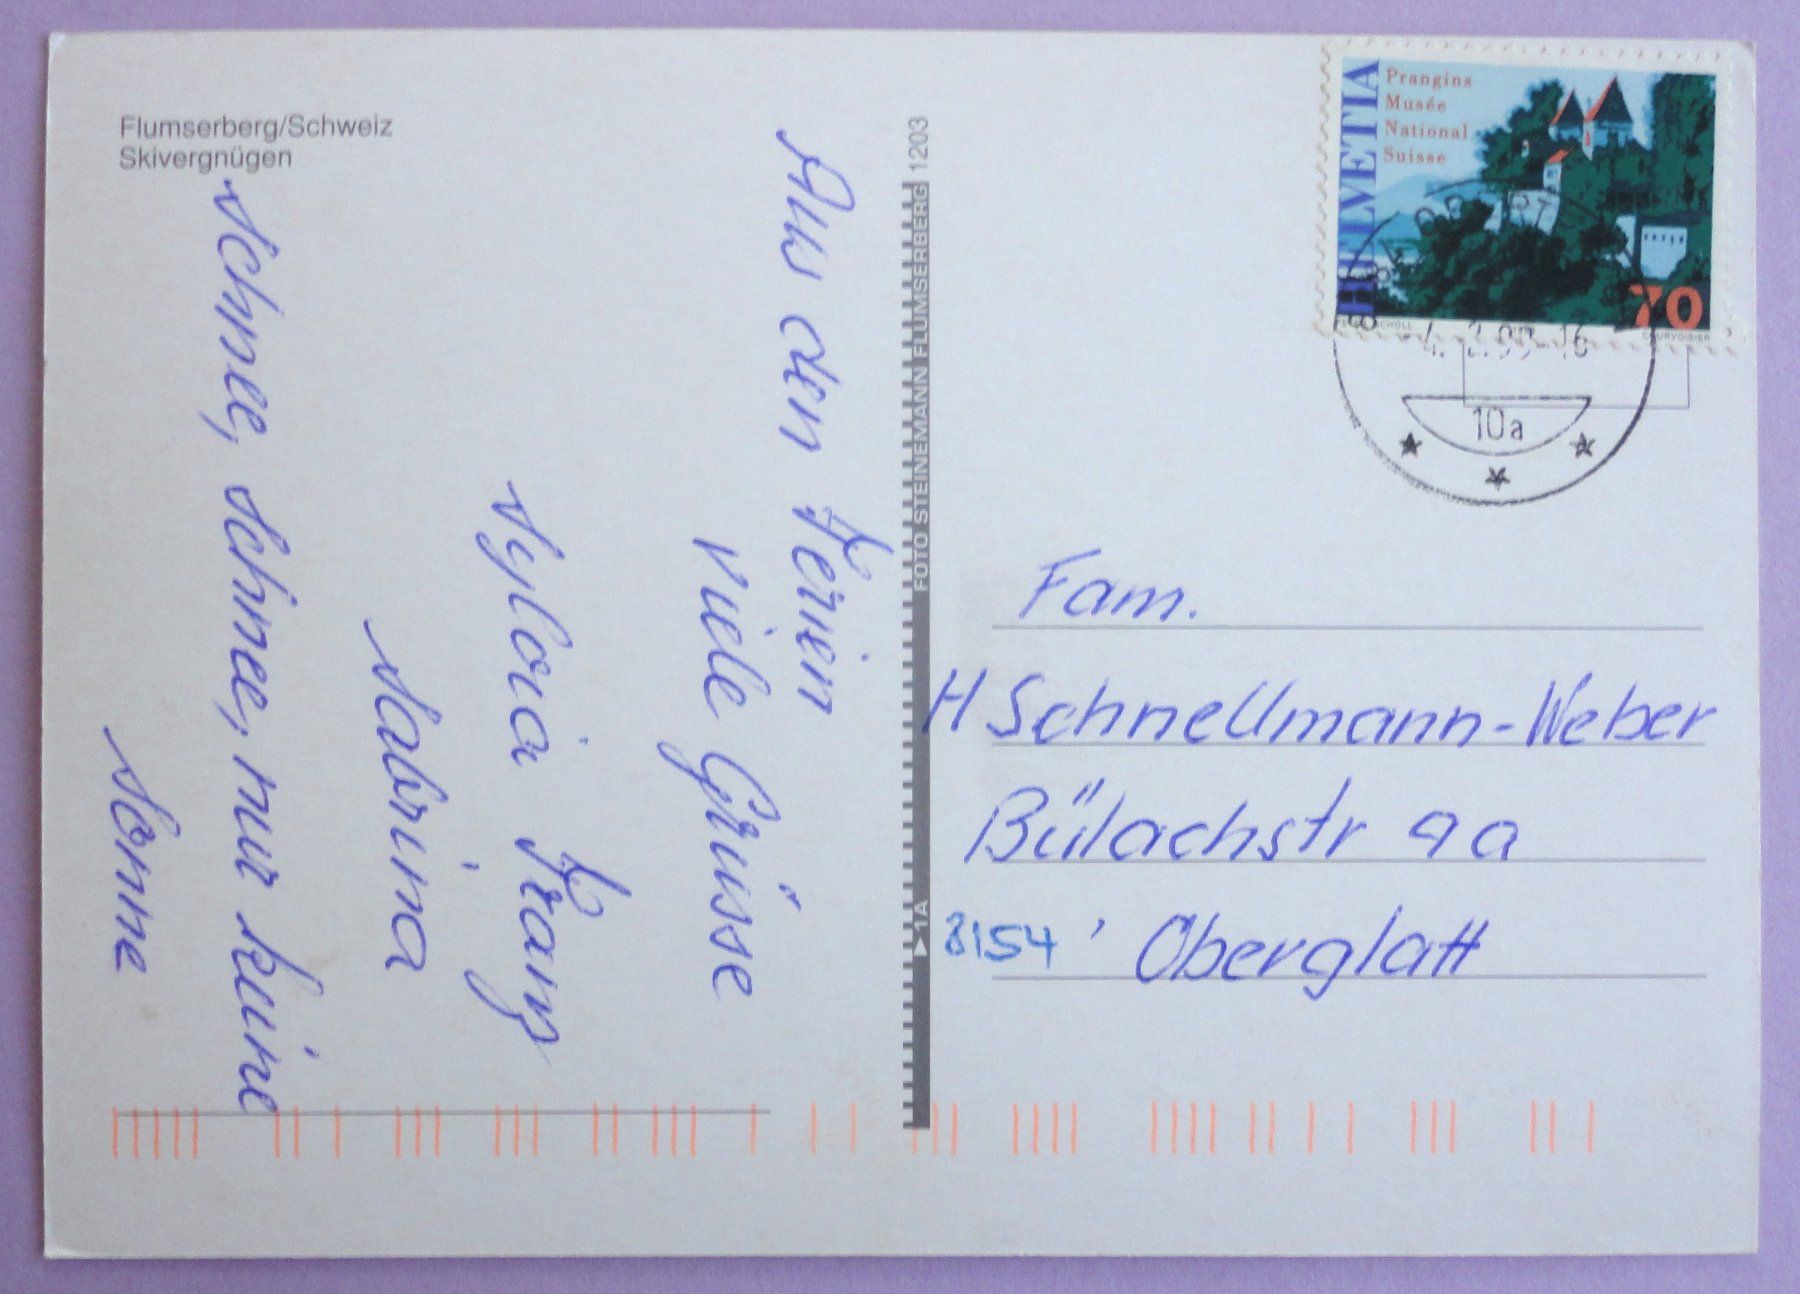 Flumserberg/Schweiz
Skivergnügen
Aus den Ferien
viele Grüsse
Sylvia Kranz
Sabrina
Schnee, Schnee, nur keine
Sonne
FOTO STEINEMANN FLUMSERBERG 1203
1A
HELVETIA
Prangins
Musée
National
Suisse
70
COURVOISIER
10a
Fam.
H Schnellmann-Weber
Bülachstr 9a
8154 Oberglatt